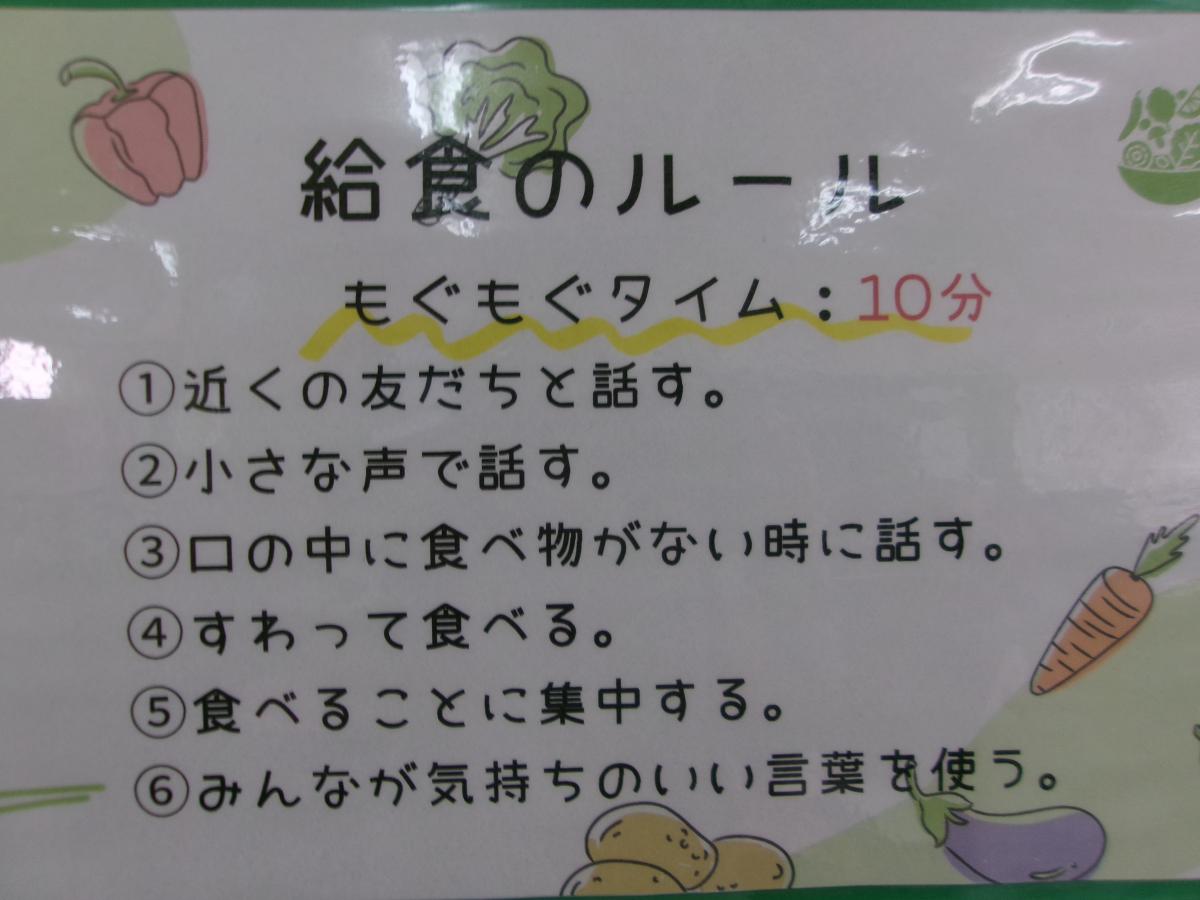 給食のルール
もぐもぐタイム：10分
①近くの友だちと話す。
②小さな声で話す。
③口の中に食べ物がない時に話す。
④すわって食べる。
⑤食べることに集中する。
⑥みんなが気持ちのいい言葉を使う。